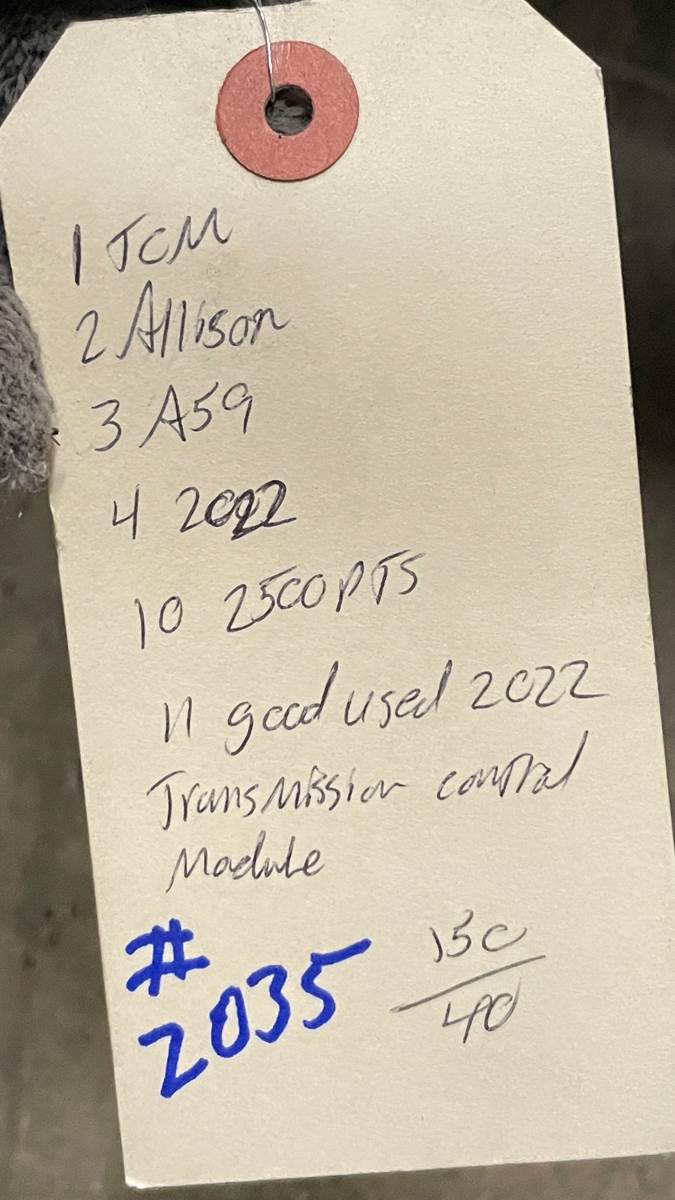 1 TCM
2 Allison
3 A59
4 2022
10 2500PTS
11 good used 2022
Transmission control
Module
#
2035
150
40